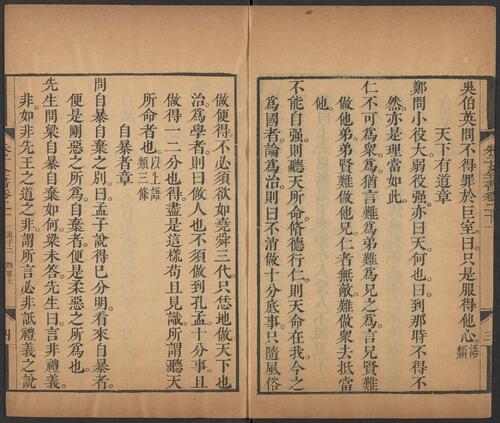 吳伯英問不得罪於巨室曰只是服得他心語類
天下有道章
鄭問小役大弱役強亦曰天何也曰到那時不得不
然亦是理當如此
仁不可為衆為猶言難為弟難為兄之為言兄賢難
做他弟弟賢難做他兄仁者無敵難做衆去抵當
他
不能自強則聽天所命修德行仁則天命在我今之
為國者論為治則曰不消做十分底事只隨風俗
做便得不必須欲如堯舜三代只恁地做天下也
治為學者則曰做人也不須做到孔孟十分事且
做得一二分也得盡是這樣苟且見識所謂聽天
所命者也以上語類三條
自暴者章
問自暴自棄之別曰孟子說得已分明看來自暴者
便是剛惡之所為自棄者便是柔惡之所為也
先生問梁自暴自棄如何梁未答先生曰言非禮義
非如非先王之道之非謂所言必非詆禮義之說
朱子全書卷二
三
四